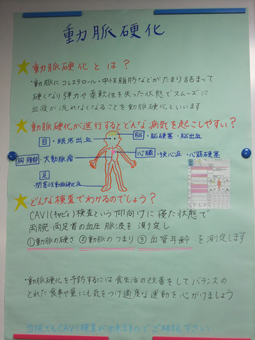 動脈硬化
動脈硬化とは？
動脈にコレステロール・中性脂肪などがたまり詰まって
硬くなり弾力や柔軟性を失った状態でスムーズに
血液が流れなくなることを動脈硬化といいます
動脈硬化が進行するとどんな病気を起こしやすい？
目・眼底出血
脳・脳梗塞・脳出血
胸腹部・大動脈瘤
心臓・狭心症・心筋梗塞
足
・閉塞性動脈硬化症
どんな検査でわかるのでしょう？
CAVI(キャビィ)検査という仰向けに寝た状態で
両腕・両足首の血圧 脈波を 測り定し
①動脈の硬さ ②動脈のつまり ③血管年齢 を 測定します
動脈硬化を予防するには食生活の改善をしてバランスの
とれた食事や量にも気をつけ適度な運動を心がけましょう